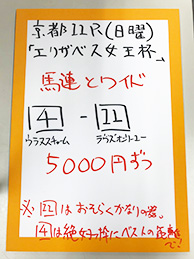 京都11R(日曜)
「エリザベス女王杯」
馬連とワイド
4 - 11
ウラヌスチャーム ラヴズオンリーユー
5000円ずつ
※11はおそらくかなりの器。
4は絶好枠にベストの距離で!